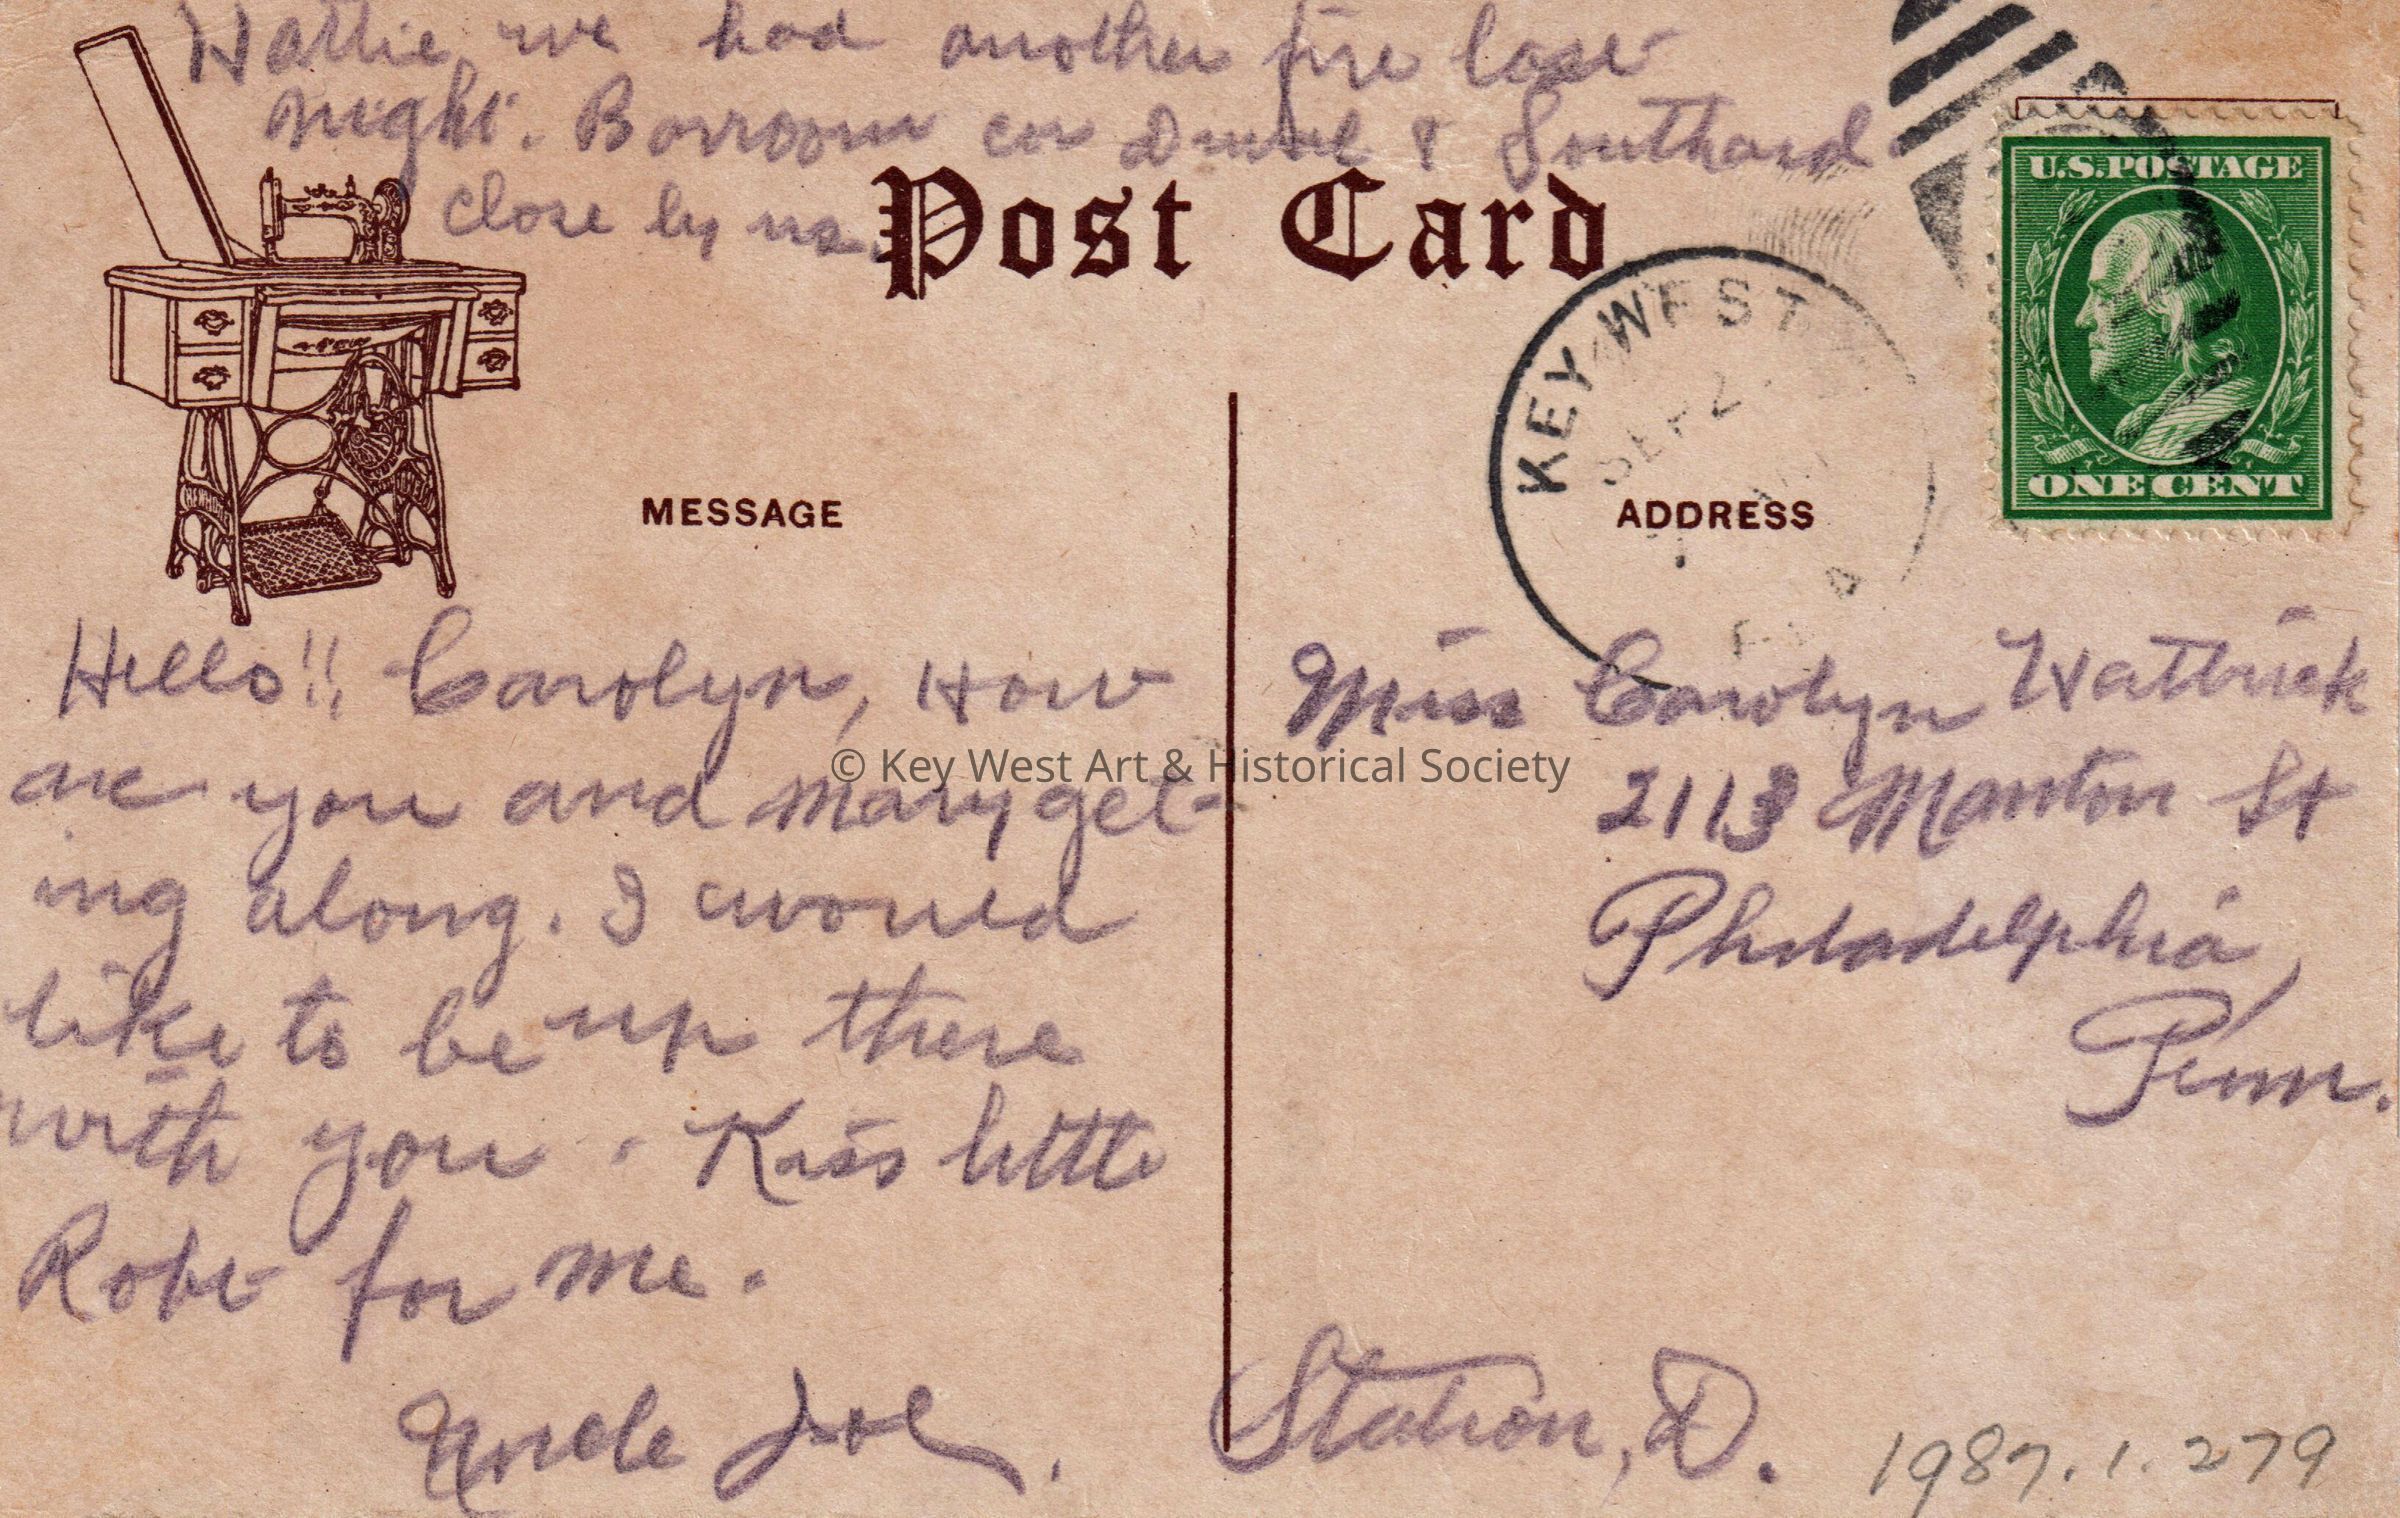 Hattie, we had another fire last
night. Barroom cor Duval & Southard
close by us.
Post Card
U.S. POSTAGE
ONE CENT
KEY WEST
SEP 2
FLA
MESSAGE
ADDRESS
NEW HOME
Hello!! Carolyn, How
are you and Mary get-
ing along. I would
like to be up there
with you. Kiss little
Robt for me.
Uncle Joe.
Miss Carolyn Hattrick
2113 Manton St
Philadelphia,
Penn.
Station, D.
1987.1.279
© Key West Art & Historical Society